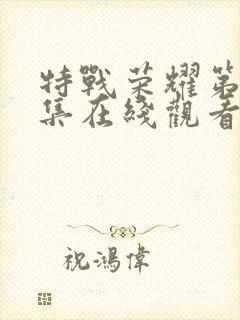 特戰荣耀第
集在綫觀看
祝鴻偉